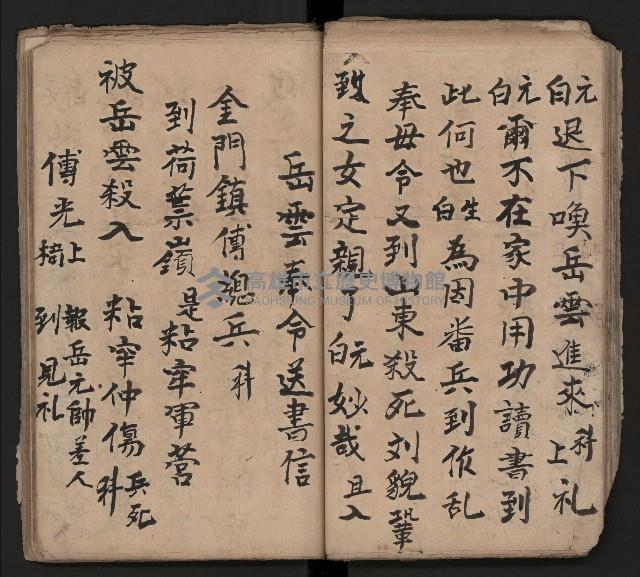 元白退下喚岳雲進來科上礼
元白爾不在家中用功讀書到
此何也生白為因番兵到作乱
奉毋令又到山東殺死刘猊鞏
致之女定親了元白妙哉且入
岳雲奉令送書信
金門鎮傅 兵科
到荷葉嶺是粘罕軍营
被岳雲殺入粘罕仲傷兵死科
傅光上 報岳元帥差人
到見礼
高雄市立歷史博物館
KAOHSIUNG MUSEUM OF HISTORY